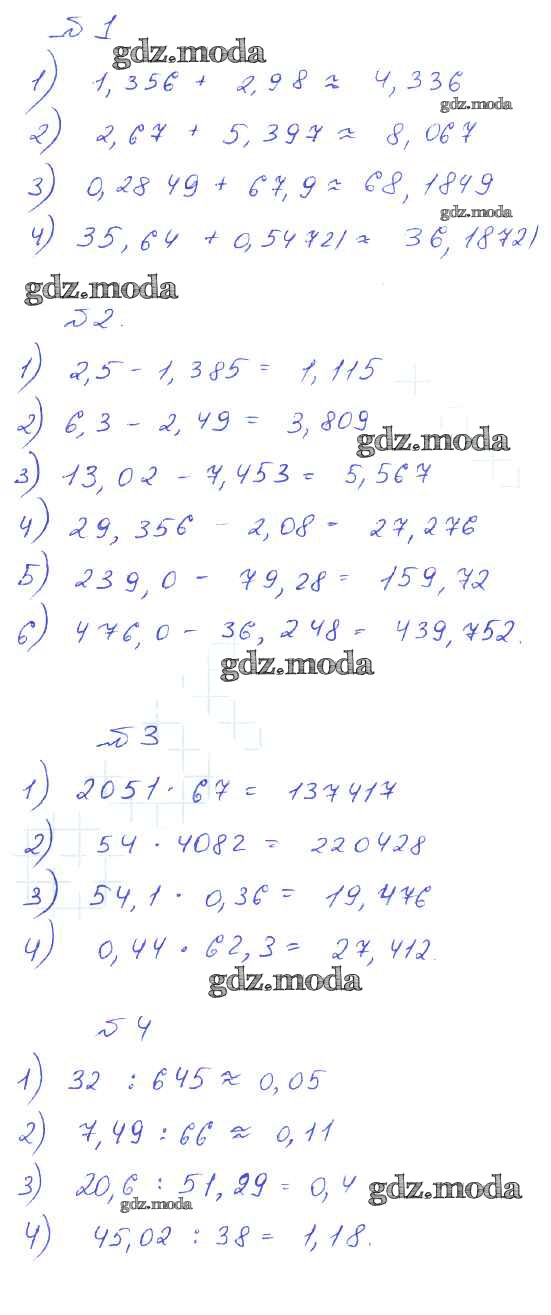 № 1
gdz.moda
1) 1,356 + 2,98 ≈ 4,336
gdz.moda
2) 2,67 + 5,397 ≈ 8,067
3) 0,2849 + 67,9 ≈ 68,1849
gdz.moda
4) 35,64 + 0,54721 ≈ 36,18721
gdz.moda
№ 2.
1) 2,5 - 1,385 = 1,115
2) 6,3 - 2,49 = 3,809
gdz.moda
3) 13,02 - 7,453 = 5,567
4) 29,356 - 2,08 = 27,276
5) 239,0 - 79,28 = 159,72
6) 476,0 - 36,248 = 439,752.
gdz.moda
№ 3
1) 2051 · 67 = 137417
2) 54 · 4082 = 220428
3) 54,1 · 0,36 = 19,476
4) 0,44 · 62,3 = 27,412.
gdz.moda
№ 4
1) 32 : 645 ≈ 0,05
2) 7,49 : 66 ≈ 0,11
3) 20,6 : 51,29 = 0,4 gdz.moda
gdz.moda
4) 45,02 : 38 = 1,18.